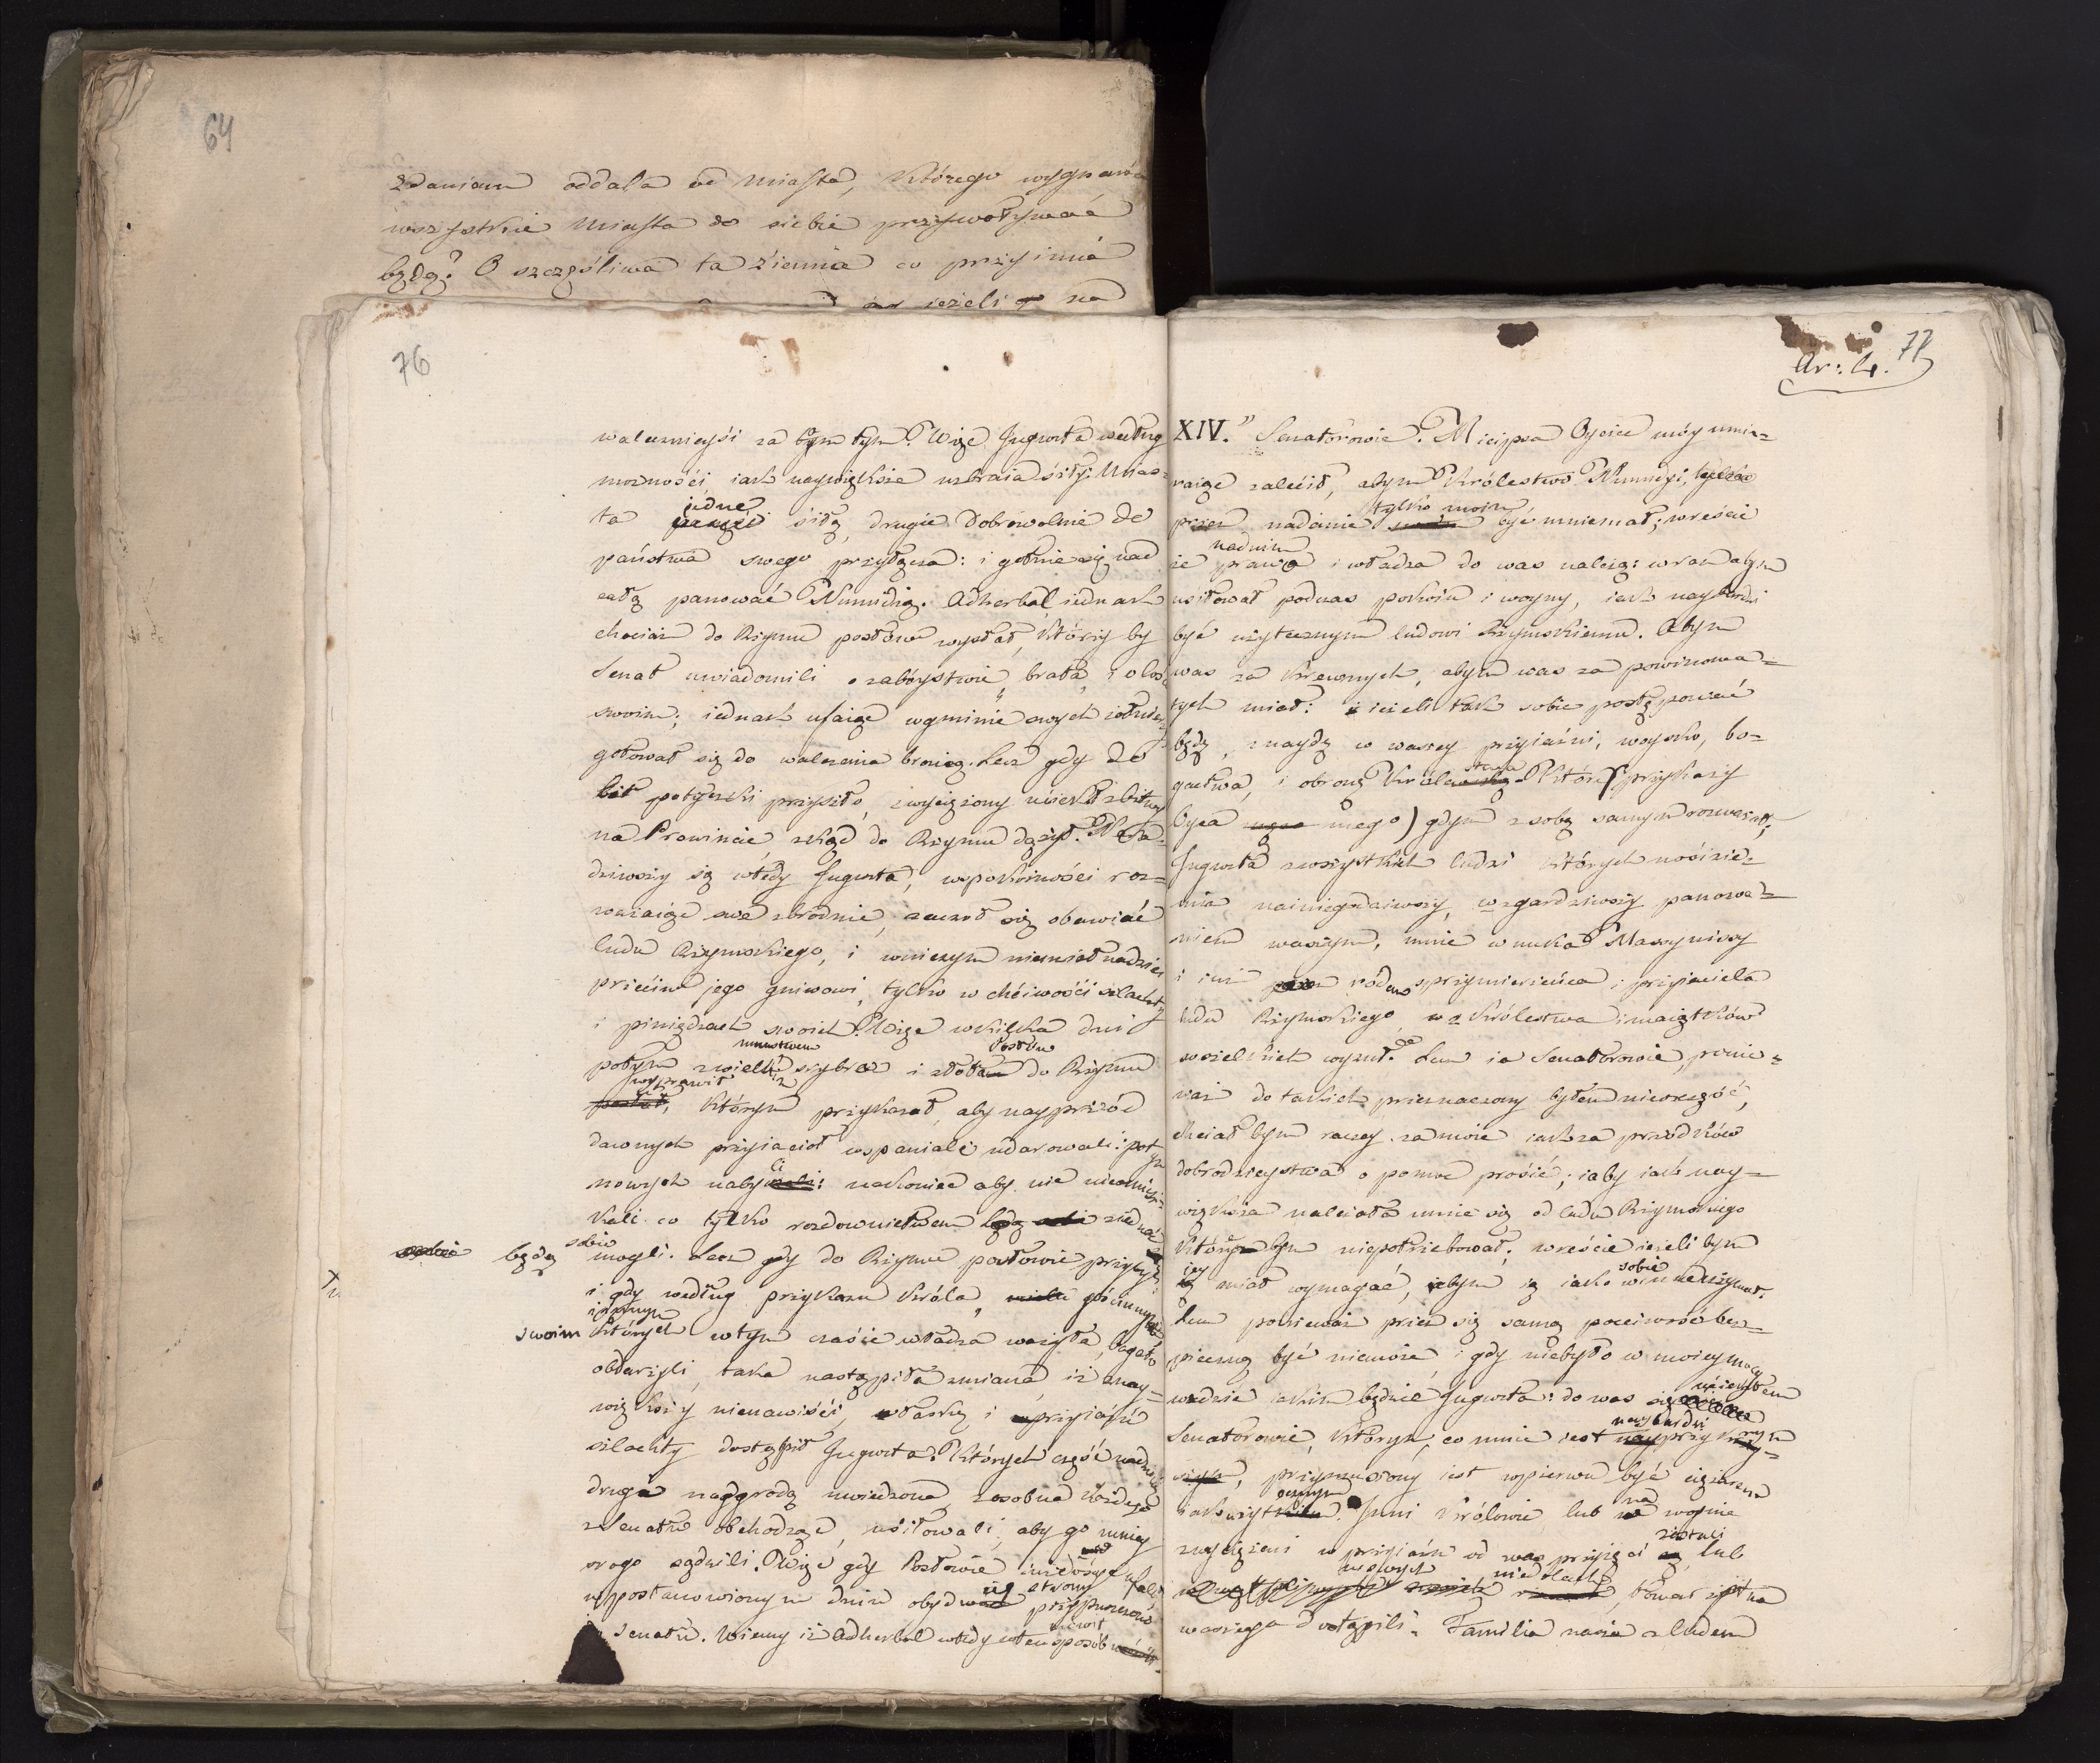 64
zdaniem oddala od Miasta, którego wygnańca
wszystkie Miasta do siebie przywoływać
będą? O szczęśliwa ta ziemia co przyimie
ieżeli na
76
walecznieysi za tym tym. Więc Jugurta według
możności iak naywiększe uzbraia siły: Mias=
ta jedne siłą, drugie dobrowolnie do
państwa swego przyłącza: i gotuie się nad
całą panować Numidią. Adherbal iednak
chociaż do Rzymu posłów wysłał, którzy by
Senat uwiadomili o zabóystwie brata, i o losie
swoim; iednak ufaiąc w gminie swych żołnierzy
gotował się do walczenia bronią. Lecz gdy do
potyczki przyszło, zwyciężony uciekł z bitwy
na Prowincie, zkąd do Rzymu dążył.
dziwszy się wtedy Jugurta, w spokoiności roz=
ważaiąc swe zbrodnie, zaczął się obawiać
ludu Rzymskiego, i w niczym nie miał nadziei
przeciw jego gniewowi, tylko w chciwości szlachty
i pieniądzach swoich. Więc w kilka dni
mnóstwem Posłów
potym z wielkim srybra i złota do Rzymu
wyprawił
posłał, którym przykazał, aby nayprzód
dawnych przyiaciół wspaniale udarowali: potym
nowych nabyli: nakoniec aby nie
kali co tylko rozdawnictwem ziednać
będą sobie mogli. Lecz gdy do Rzymu posłowie przybyli
i gdy według przykazu króla, gościnnym
i innym
swoim których w tym czasie władza ważyła,
obdarzyli, taka nastąpiła zmiana, iż z nay=
większy nienawiści, w łaskę i przyiaźń
szlachty dostąpił Jugurta. Których część nadzieią
druga nadgrodą uwiedzona, z osobna każdego
z Senatu obchodząc, usiłowali, aby go mniey
srogo sądzili. Więc gdy Posłowie iuż dosyć ufali
w postanowionym dniu obydwie strony przypuszczono
mówił
Senatu. Wiemy iż Adherbal wtedy w ten sposób
Ar: 4. 77
XIV." Senatorowie. Micipsa Oyciec móy umie=
raiąc zalecił, abym Królestwo Numidyi, tylko
tylko moim
przez nadanie być mniemał; wreście
nad nim
że prawo i władza do was należą: wraz abym
usiłował podczas pokoiu i woyny, iak naybardzi
być użytecznym ludowi Rzymskiemu. Abym
was za krewnych, abym was za powinowa=
tych miał: ieżeli tak sobie postępować
będę, znaydę w waszey przyiaźni, woysko, bo=
gactwa, i obronę Królestwa. Któreż przykazy
Oyca mego) gdym z sobą samym rozważał;
Jugurta z wszystkich ludzi których nosi zie=
mia nainiegodziwszy, wzgardziwszy panowa=
niem waszym, mnie wnuka Massynissy
i iuż rodem sprzymierzeńca i przyiaciela
ludu Rzymskiego, z Królestwa i maiątków
wszelkich wyzuł. Lecz ia Senatorowie, ponie=
waż do takich przeznaczony byłem nieszczęść,
chciał bym raczey za moie iak za przodków
dobrodzieystwa o pomoc prosić; i aby iak nay=
większa należała mnie się od ludu Rzymskiego
którey bym niepotrzebował; wreście ieżeli bym
iey sobie
miał wymagać, abym ią iako winne używał.
Lecz ponieważ przez się samą poczciwość bez=
pieczną być niemoże, i gdy niebyło w moiey mocy
uciekłem
wiedzie iakim będzie Jugurta: do was się
naybardzi
Senatorowie, którym, co mnie iest przykrzy=
przymuszony iest wpierwey być ciężarem
iak użytecznym. Inni Królowie lub na woynie
zostali
zwyciężeni w przyiaźń od was przyięci lub
w swych niedolach, towarzystwa
waszego dostąpili. Familia nasza z ludem